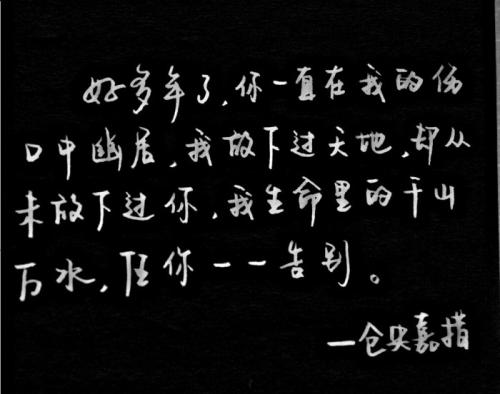 好多年了，你一直在我的伤
口中幽居，我放下过天地，却从
未放下过你，我生命里的千山
万水，任你一一告别。
—仓央嘉措